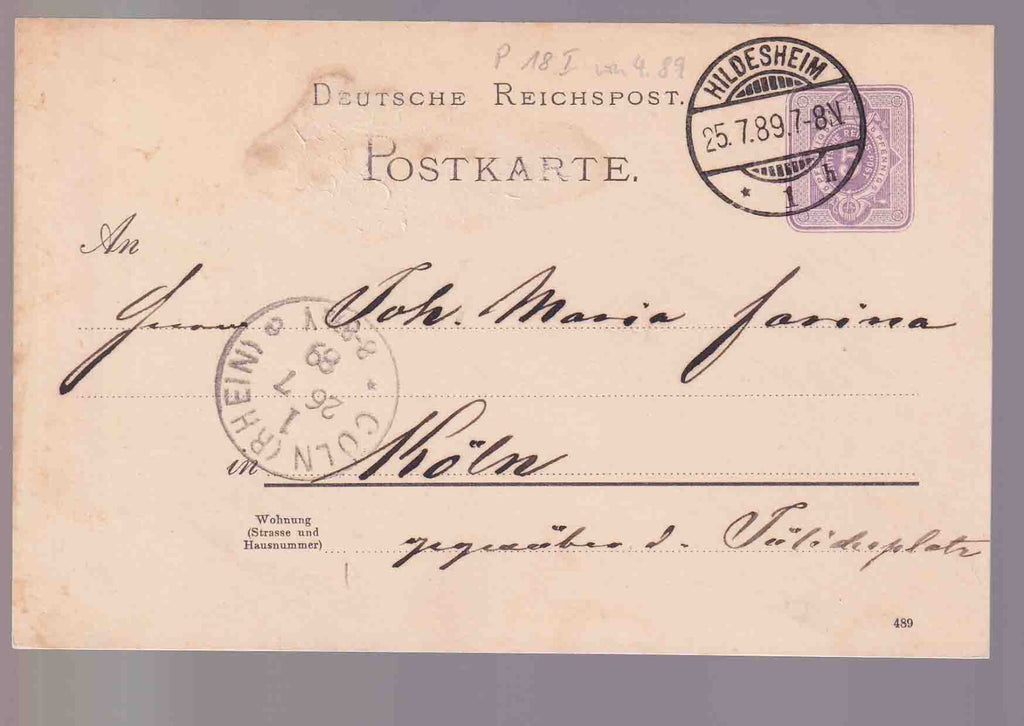 P 18 I von 4.89
DEUTSCHE REICHSPOST.
POSTKARTE.
HILDESHEIM
25.7.89.7-8N
* 1 h
FÜNF PFENNIG
An
Herrn Joh. Maria Farina
CÖLN (RHEIN) *
1
26
7
89
8-9V
in Köln
Wohnung
(Strasse und
Hausnummer)
gegenüber d. Jülichsplatz
489